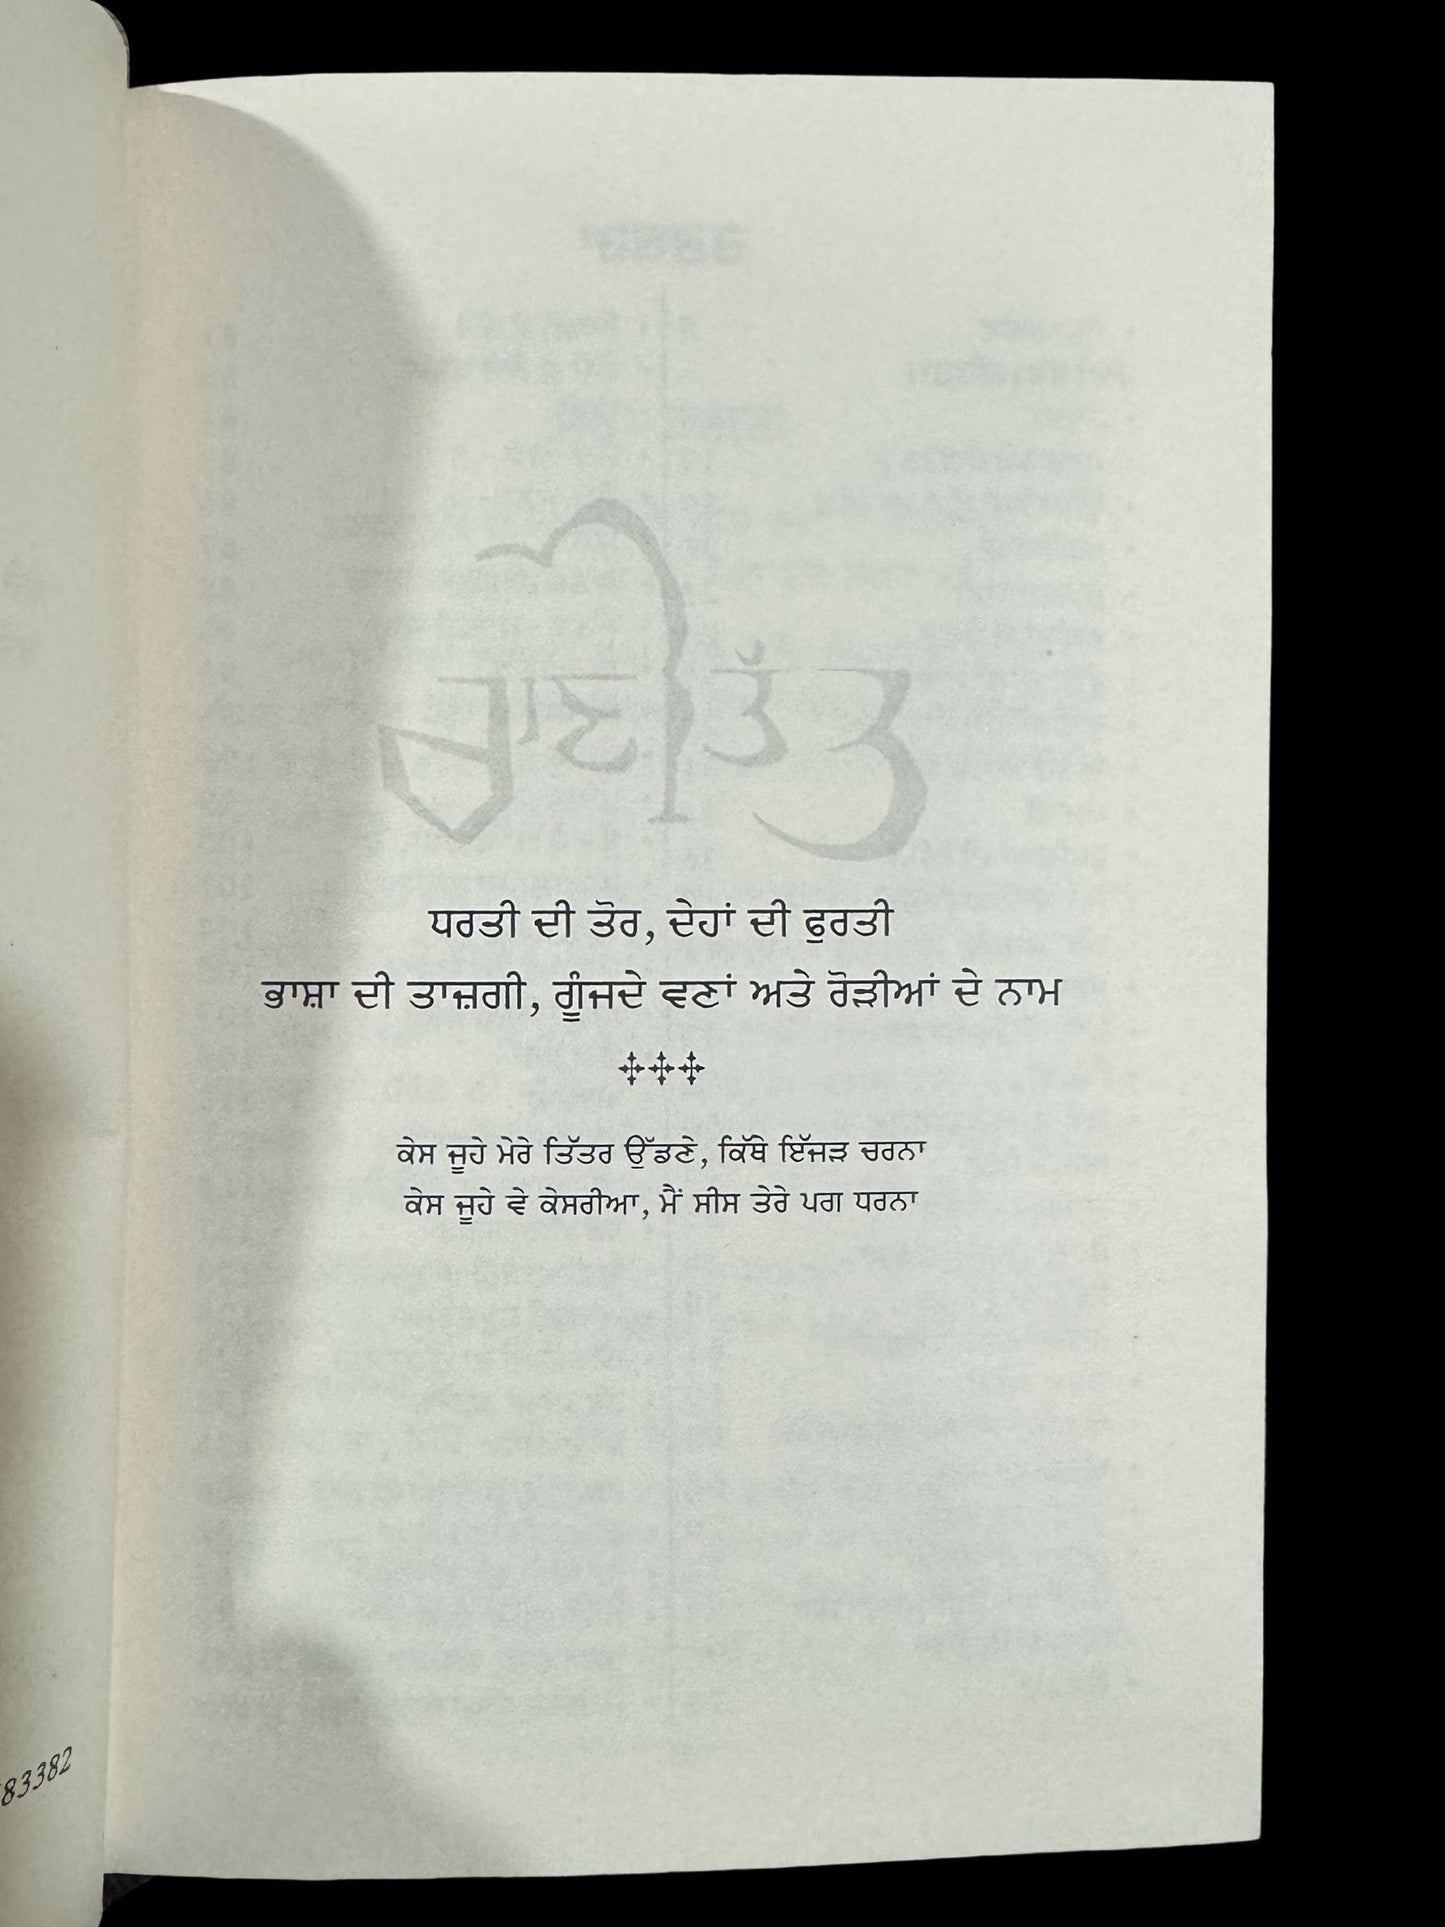 ਚਾਣੀ ਤੱਤ
ਧਰਤੀ ਦੀ ਤੋਰ, ਦੇਹਾਂ ਦੀ ਫੁਰਤੀ
ਭਾਸ਼ਾ ਦੀ ਤਾਜ਼ਗੀ, ਗੂੰਜਦੇ ਵਣਾਂ ਅਤੇ ਰੋੜੀਆਂ ਦੇ ਨਾਮ
ਕੇਸ ਜੂਹੇ ਮੇਰੇ ਤਿੱਤਰ ਉੱਡਣੇ, ਕਿੱਥੇ ਇੱਜੜ ਚਰਨਾ
ਕੇਸ ਜੂਹੇ ਵੇ ਕੇਸਰੀਆ, ਮੈਂ ਸੀਸ ਤੇਰੇ ਪਗ ਧਰਨਾ
83382